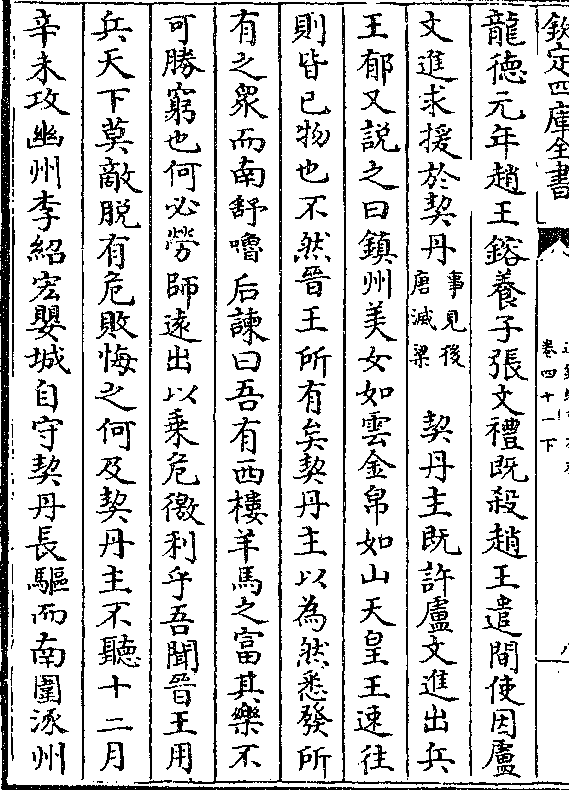 欽定四庫全書
卷四十一下
龍德元年趙王鎔養子張文禮既殺趙王遣間使因盧
文進求援於契丹事見後唐滅梁 契丹主既許盧文進出兵
王郁又說之曰鎮州美女如雲金帛如山天皇王速往
則皆已物也不然晉王所有矣契丹主以為然悉發所
有之衆而南舒嚕后諫曰吾有西樓羊馬之富其樂不
可勝窮也何必勞師遠出以乗危徼利乎吾聞晉王用
兵天下莫敵脫有危敗悔之何及契丹主不聽十二月
辛未攻幽州李紹宏嬰城自守契丹長驅而南圍涿州